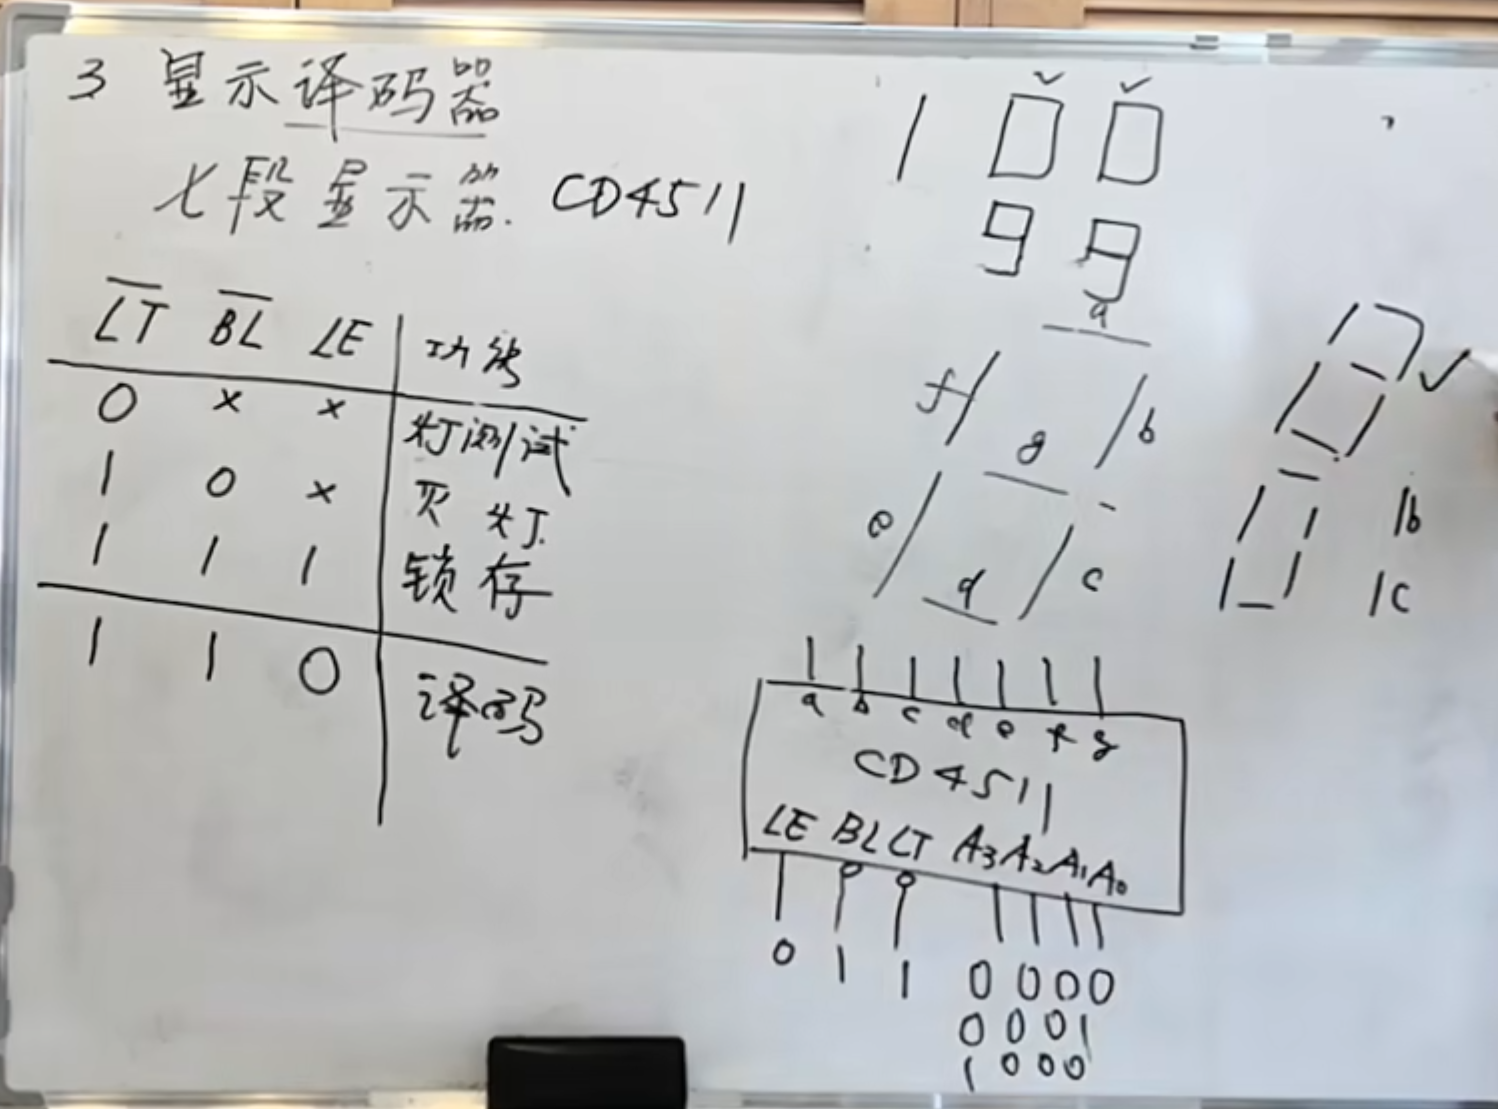 3 显示译码器
七段显示器. CD4511
LT BL LE 功能
0 × × 灯测试
1 0 × 灭灯.
1 1 1 锁存
1 1 0 译码
1 0 0
9 9
a
f b
g
e c
d
1b
1c
a b c d e f g
CD4511
LE BL LT A3 A2 A1 A0
0 1 1 0 0 0 0
0 0 0 1
1 0 0 0